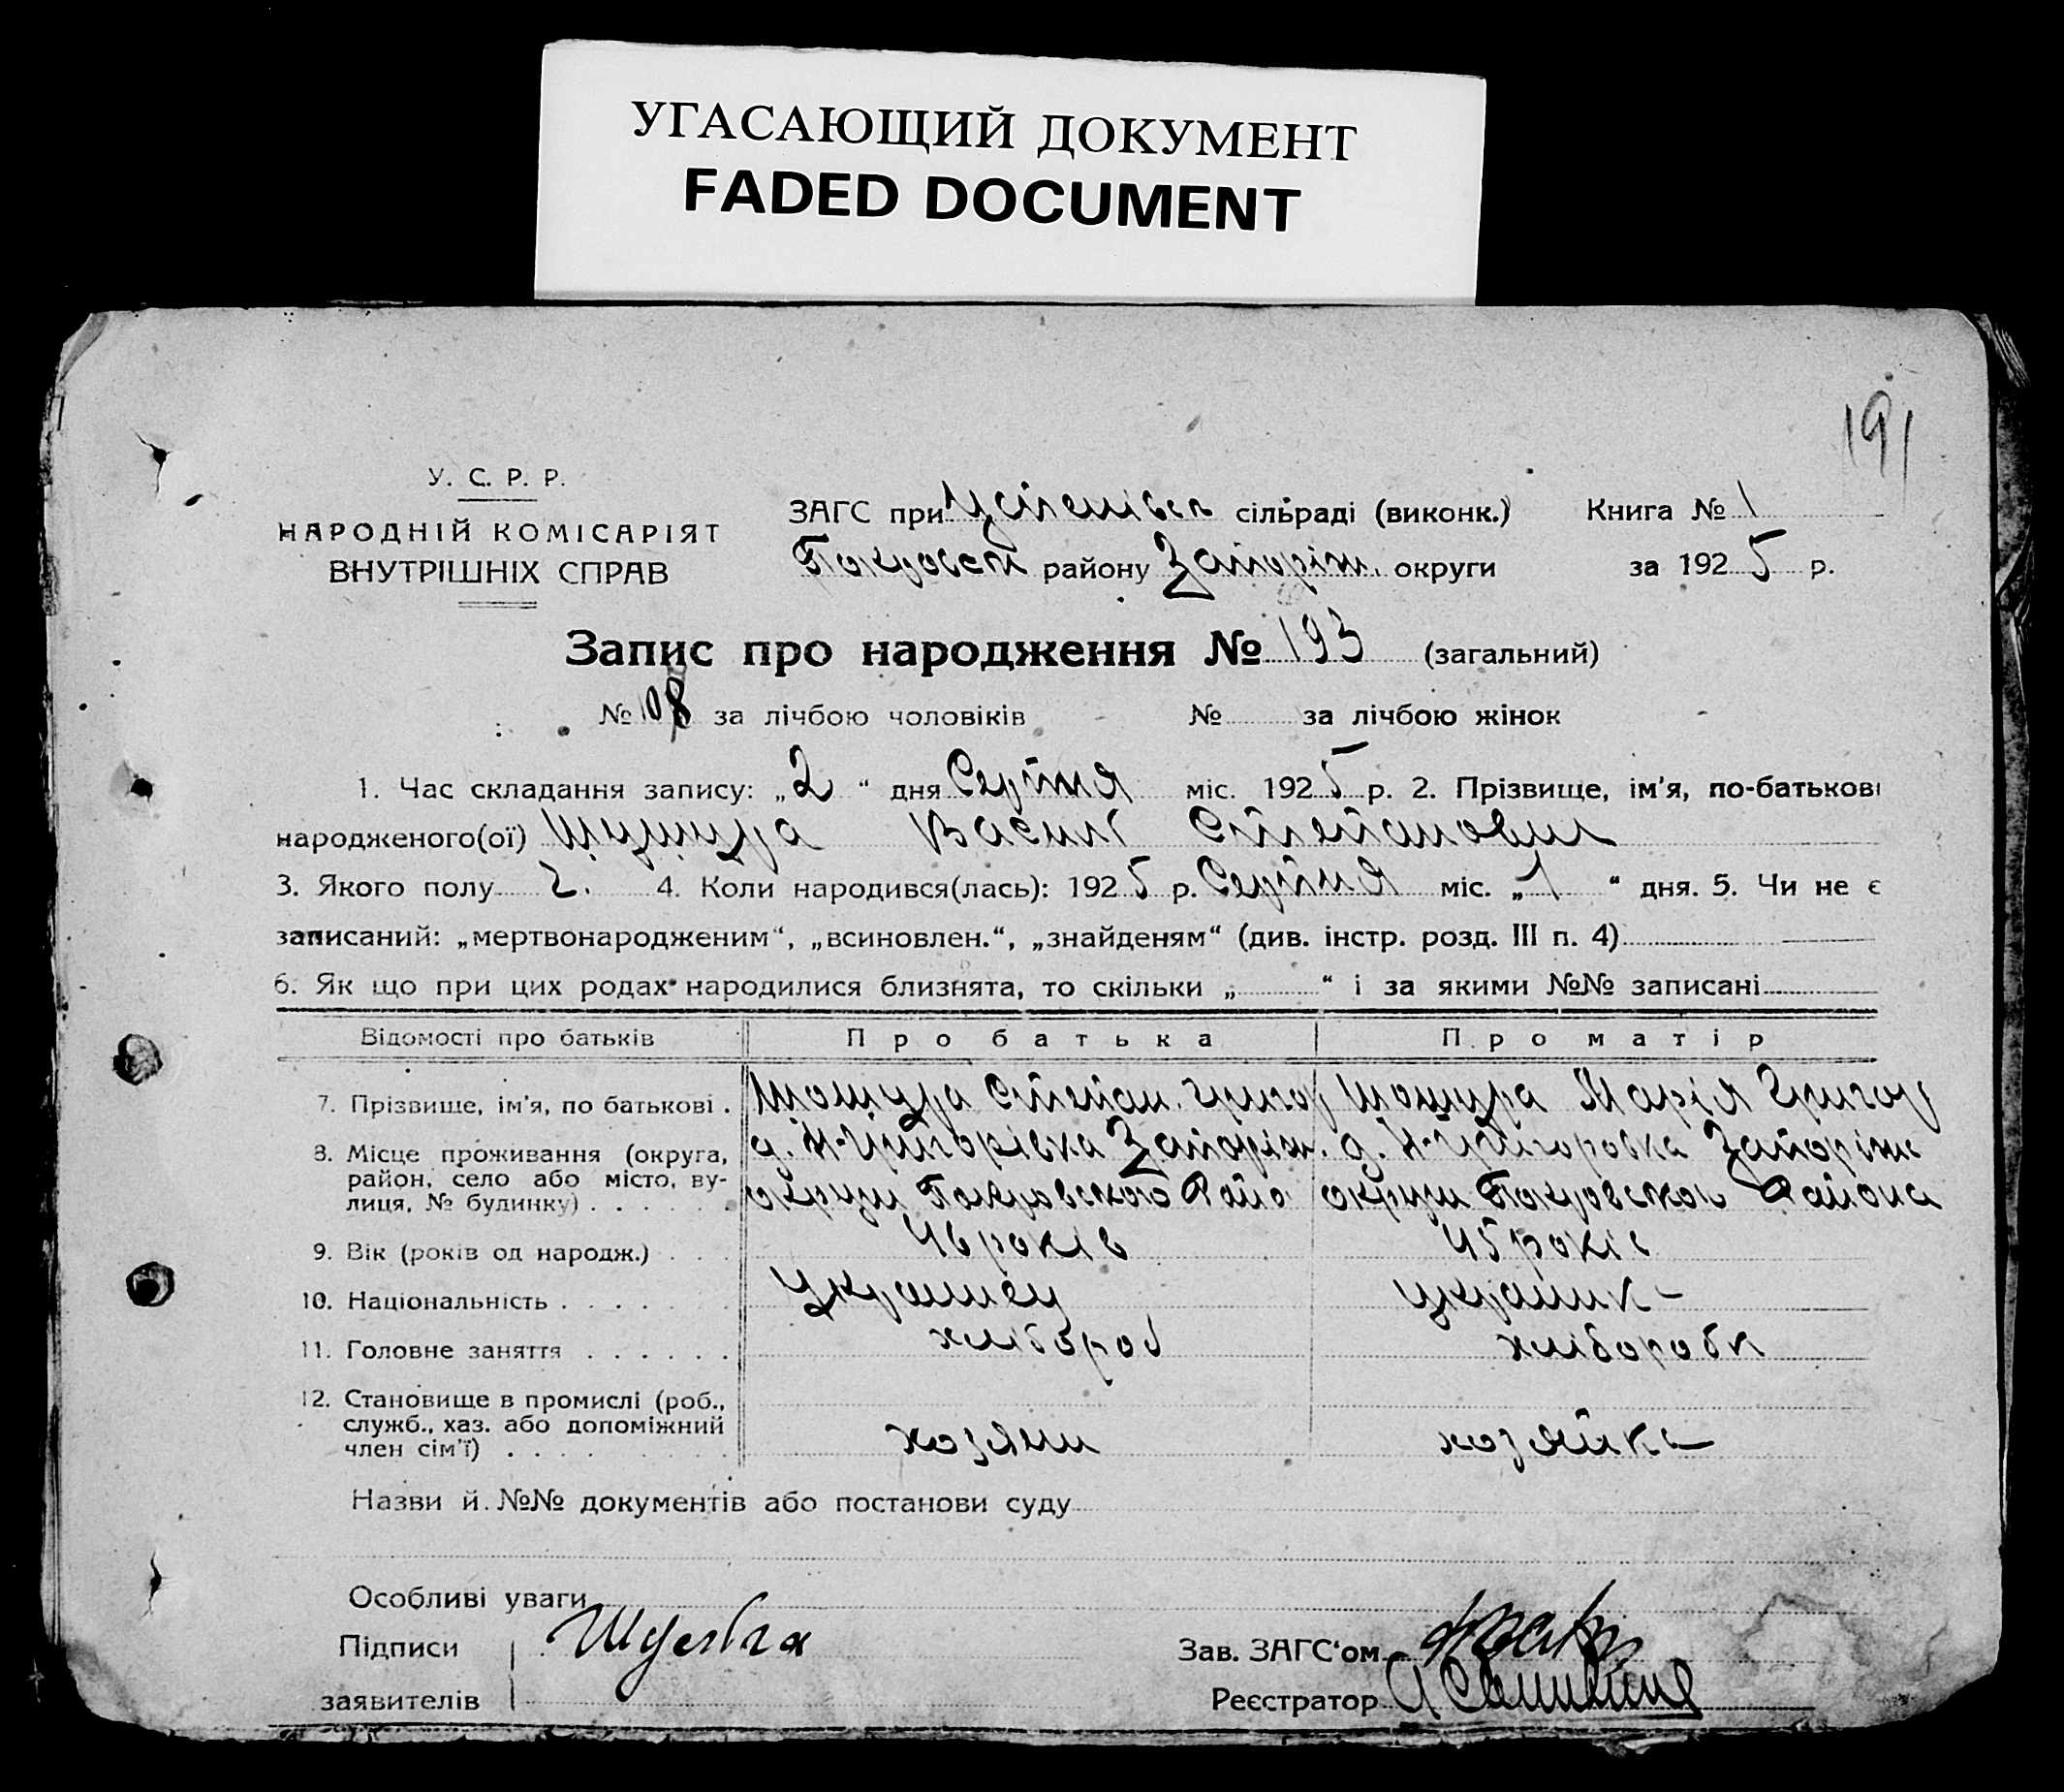 УГАСАЮЩИЙ ДОКУМЕНТ
FADED DOCUMENT
191
У. С. Р. Р.
НАРОДНІЙ КОМІСАРІЯТ
ВНУТРІШНІХ СПРАВ
ЗАГС при сільраді (виконк.) Книга № 1
Покровськ району Запоріж. округи за 1925 р.
Запис про народження № 193 (загальний)
№ 108 за лічбою чоловіків № за лічбою жінок
1. Час складання запису: „2“ дня Серпня міс. 1925 р. 2. Прізвище, ім'я, по-батькові
народженого(ої) Василь Степанович
3. Якого полу ч. 4. Коли народився(лась): 1925 р. Серпня міс. „1“ дня. 5. Чи не є
записаний: „мертвонародженим“, „всиновлен.“, „знайденям“ (див. інстр. розд. III п. 4)
6. Як що при цих родах народилися близнята, то скільки „ “ і за якими №№ записані
Відомості про батьків Про батька Про матір
7. Прізвище, ім'я, по батькові . Шошура Степан Григор Шошура Марія Григор
8. Місце проживання (округа, д. Н-Григорівка Запоріж. д. Н-Григоровка Запоріж
район, село або місто, ву-
лиця, № будинку) . . . . . . округи Покровського Райо округи Покровськог Района
9. Вік (років од народж.) . . . 46 років 45 років
10. Національність . . . . . . . українец україинк
11. Головне заняття . . . . . . хлібороб хліборобк
12. Становище в промислі (роб.,
служб., хаз. або допоміжний
член сім'ї) . . . . . . . . хозяин хозяйка
Назви й №№ документів або постанови суду
Особливі уваги
Підписи Зав. ЗАГС'ом
заявителів Реєстратор